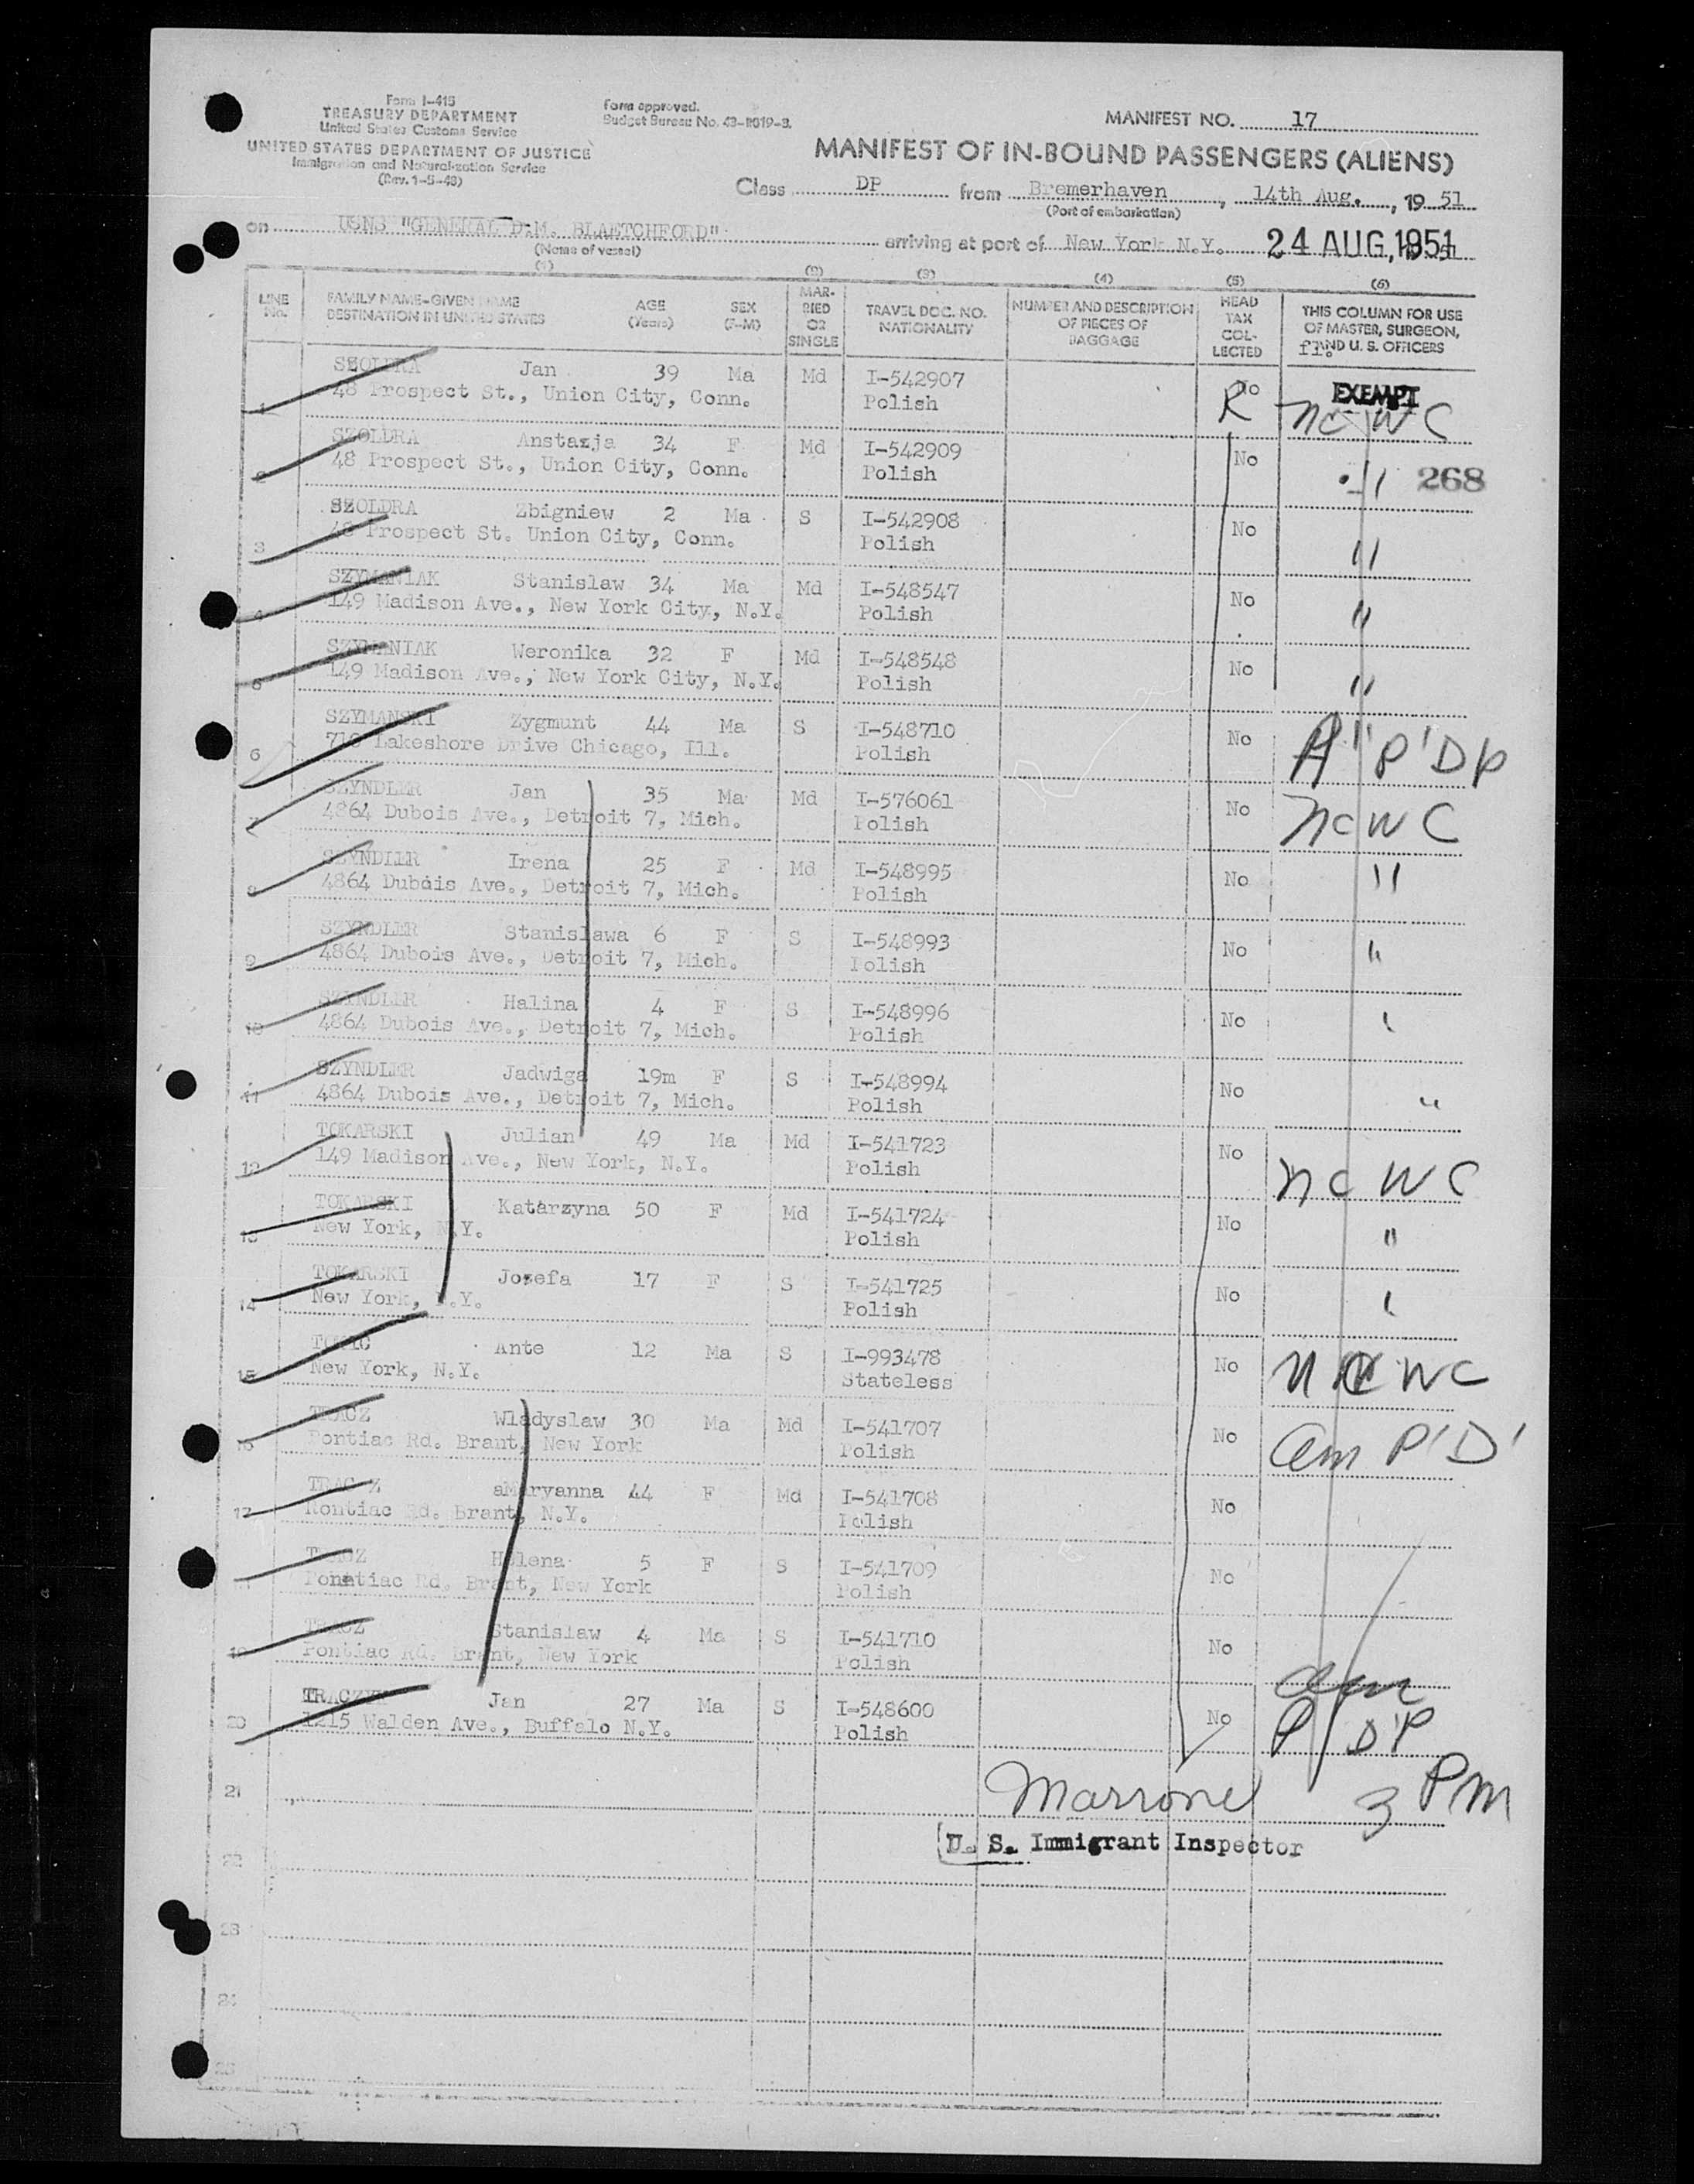 Form I-415
TREASURY DEPARTMENT
United States Customs Service
UNITED STATES DEPARTMENT OF JUSTICE
Immigration and Naturalization Service
(Rev. 1-5-48)
Form approved.
Budget Bureau No. 43-R019-3.
MANIFEST NO. 17
MANIFEST OF IN-BOUND PASSENGERS (ALIENS)
Class DP from Bremerhaven, 14th Aug., 19 51
(Port of embarkation)
on USNS "GENERAL D.M. BLAETCHFORD" arriving at port of New York N.Y. 24 AUG, 1951
(Name of vessel)
(1) (2) (3) (4) (5) (6)
LINE No. FAMILY NAME-GIVEN NAME DESTINATION IN UNITED STATES AGE (Years) SEX (F-M) MARRIED OR SINGLE TRAVEL DOC. NO. NATIONALITY NUMBER AND DESCRIPTION OF PIECES OF BAGGAGE HEAD TAX COLLECTED THIS COLUMN FOR USE OF MASTER, SURGEON, AND U. S. OFFICERS
1 SZOLDRA Jan 39 Ma Md I-542907 No EXEMPT
48 Prospect St., Union City, Conn. Polish R nc WC
2 SZOLDRA Anstazja 34 F Md I-542909 No
48 Prospect St., Union City, Conn. Polish " 268
3 SZOLDRA Zbigniew 2 Ma S I-542908 No
48 Prospect St. Union City, Conn. Polish "
4 SZYMANIAK Stanislaw 34 Ma Md I-548547 No
149 Madison Ave., New York City, N.Y. Polish "
5 SZYMANIAK Weronika 32 F Md I-548548 No
149 Madison Ave., New York City, N.Y. Polish "
6 SZYMANSKI Zygmunt 44 Ma S I-548710 No
Lakeshore Drive Chicago, Ill. Polish
7 SZYNDLER Jan 35 Ma Md I-576061 No
4864 Dubois Ave., Detroit 7, Mich. Polish nc WC
8 SZYNDLER Irena 25 F Md I-548995 No
4864 Dubois Ave., Detroit 7, Mich. Polish "
9 SZYNDLER Stanislawa 6 F S I-548993 No
4864 Dubois Ave., Detroit 7, Mich. Polish "
10 SZYNDLER Halina 4 F S I-548996 No
4864 Dubois Ave., Detroit 7, Mich. Polish
11 SZYNDLER Jadwiga 19m F S I-548994 No
4864 Dubois Ave., Detroit 7, Mich. Polish "
12 TOKARSKI Julian 49 Ma Md I-541723 No
149 Madison Ave., New York, N.Y. Polish nc WC
13 TOKARSKI Katarzyna 50 F Md I-541724 No
New York, N.Y. Polish "
14 TOKARSKI Josefa 17 F S I-541725 No
New York, N.Y. Polish
15 Ante 12 Ma S I-993478 No
New York, N.Y. Stateless WC
16 TRACZ Wladyslaw 30 Ma Md I-541707 No
Pontiac Rd. Brant, New York Polish am P'D'
17 TRACZ aMaryanna 44 F Md I-541708 No
Pontiac Rd. Brant, N.Y. Polish
18 TRACZ Helena 5 F S I-541709 No
Pontiac Rd. Brant, New York Polish
19 TRACZ Stanislaw 4 Ma S I-541710 No
Pontiac Rd. Brant, New York Polish
20 Jan 27 Ma S I-548600 No am
1215 Walden Ave., Buffalo N.Y. Polish P DP
21 Marrone 3 PM
U. S. Immigrant Inspector
22
23
24
25